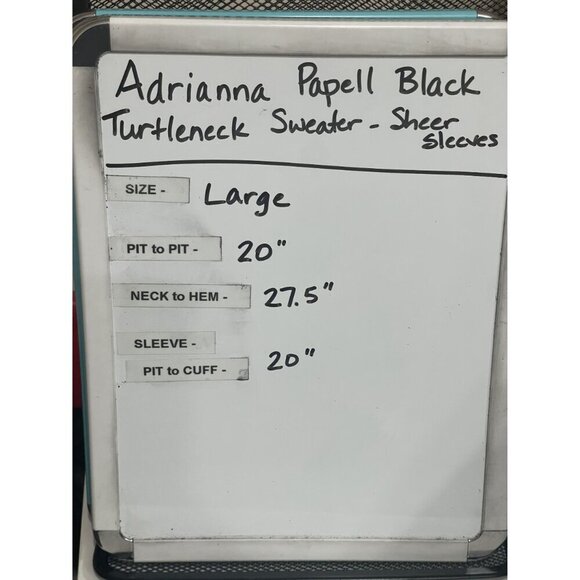 Adrianna Papell Black
Turtleneck Sweater - Sheer
Sleeves
SIZE - Large
PIT to PIT - 20"
NECK to HEM - 27.5"
SLEEVE -
PIT to CUFF - 20"